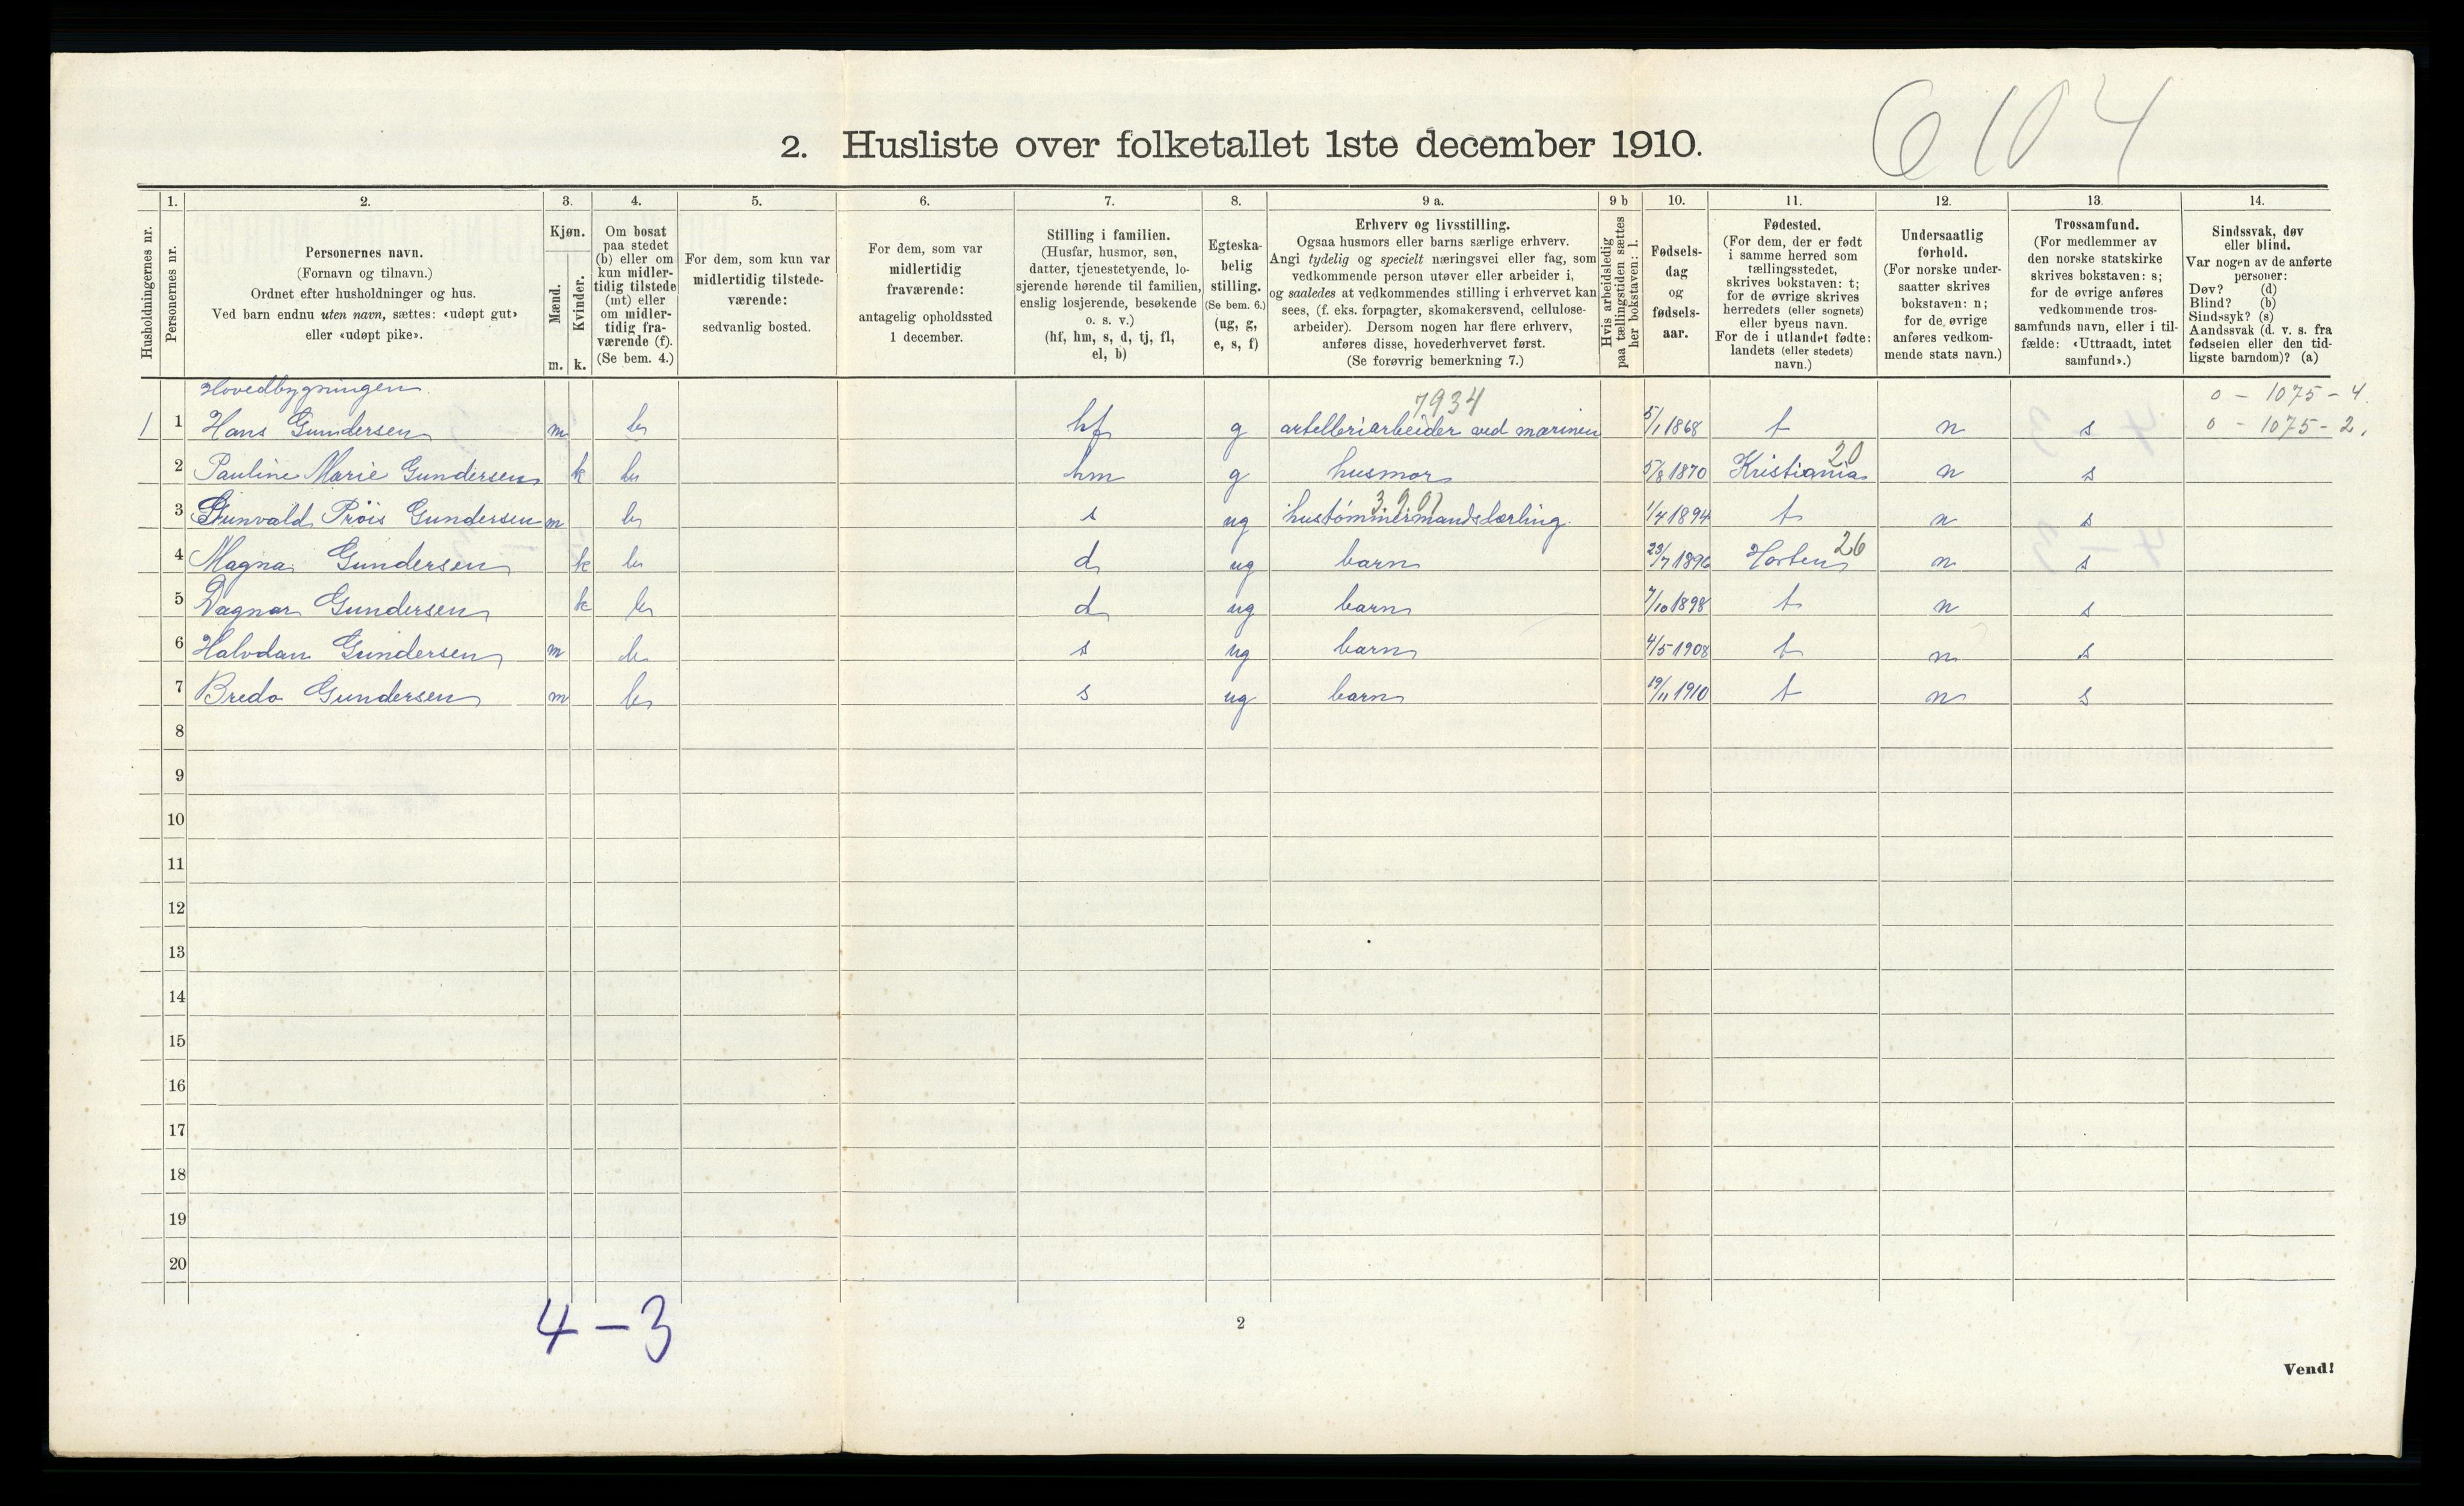 6104
2. Husliste over folketallet 1ste december 1910.
Husholdningernes nr.
1.
Personernes nr.
2.
Personernes navn.
(Fornavn og tilnavn.)
Ordnet efter husholdninger og hus.
Ved barn endnu uten navn, sættes: «udøpt gut»
eller «udøpt pike».
3.
Kjøn.
Mænd.
Kvinder.
m. k.
4.
Om bosat
paa stedet
(b) eller om
kun midler-
tidig tilstede
(mt) eller
om midler-
tidig fra-
værende (f).
(Se bem. 4.)
5.
For dem, som kun var
midlertidig tilstede-
værende:
sedvanlig bosted.
6.
For dem, som var
midlertidig
fraværende:
antagelig opholdssted
1 december.
7.
Stilling i familien.
(Husfar, husmor, søn,
datter, tjenestetyende, lo-
sjerende hørende til familien,
enslig losjerende, besøkende
o. s. v.)
(hf, hm, s, d, tj, fl,
el, b)
8.
Egteska-
belig
stilling.
(Se bem. 6.)
(ug, g,
e, s, f)
9 a.
Erhverv og livsstilling.
Ogsaa husmors eller barns særlige erhverv.
Angi tydelig og specielt næringsvei eller fag, som
vedkommende person utøver eller arbeider i,
og saaledes at vedkommendes stilling i erhvervet kan
sees, (f. eks. forpagter, skomakersvend, cellulose-
arbeider). Dersom nogen har flere erhverv,
anføres disse, hovederhvervet først.
(Se forøvrig bemerkning 7.)
9 b
Hvis arbeidsledig
paa tællingstiden sættes
her bokstaven: l.
10.
Fødsels-
dag
og
fødsels-
aar.
11.
Fødested.
(For dem, der er født
i samme herred som
tællingsstedet,
skrives bokstaven: t;
for de øvrige skrives
herredets (eller sognets)
eller byens navn.
For de i utlandet fødte:
landets (eller stedets)
navn.)
12.
Undersaatlig
forhold.
(For norske under-
saatter skrives
bokstaven: n;
for de øvrige
anføres vedkom-
mende stats navn.)
13.
Trossamfund.
(For medlemmer av
den norske statskirke
skrives bokstaven: s;
for de øvrige anføres
vedkommende tros-
samfunds navn, eller i til-
fælde: «Uttraadt, intet
samfund».)
14.
Sindssvak, døv
eller blind.
Var nogen av de anførte
personer:
Døv? (d)
Blind? (b)
Sindssyk? (s)
Aandssvak (d. v. s. fra
fødselen eller den tid-
ligste barndom)? (a)
Hovedbygningen
7934
0 - 1075 - 4.
1 1 Hans Gundersen m b hf g artelleriarbeider ved marinen 5/1 1868 t n s 0 - 1075 - 2.
20
2 Pauline Marie Gundersen k b hm g husmor 5/8 1870 Kristiania n s
3901
3 Gunvald Pröis Gundersen m b s ug hustømmermandslærling. 1/4 1894 t n s
26
4 Magna Gundersen k b d ug barn 23/7 1896 Horten n s
5 Dagnar Gundersen k b d ug barn 7/10 1898 t n s
6 Halvdan Gundersen m b s ug barn 4/5 1908 t n s
7 Bredo Gundersen m b s ug barn 19/11 1910 t n s
8
9
10
11
12
13
14
15
16
17
18
19
20
4 - 3
2
Vend!